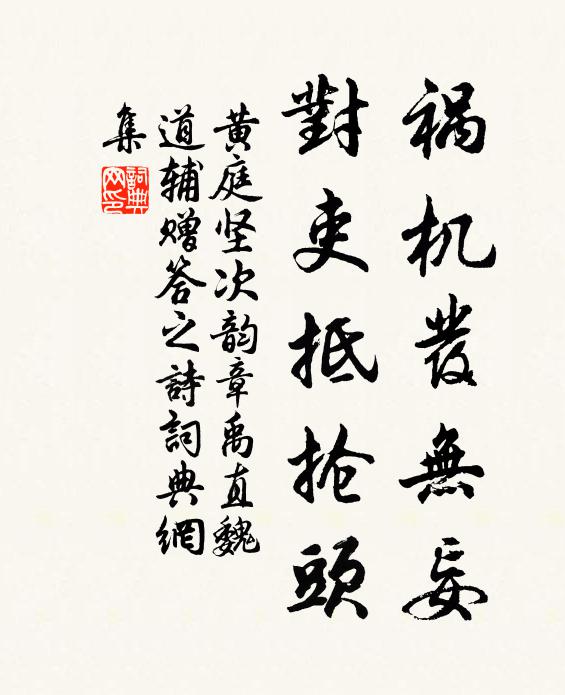 祸机發無妄
對吏抵抢頭
黄庭坚次韵章禹直魏
道辅赠答之詩詞典網
集
詞典网印